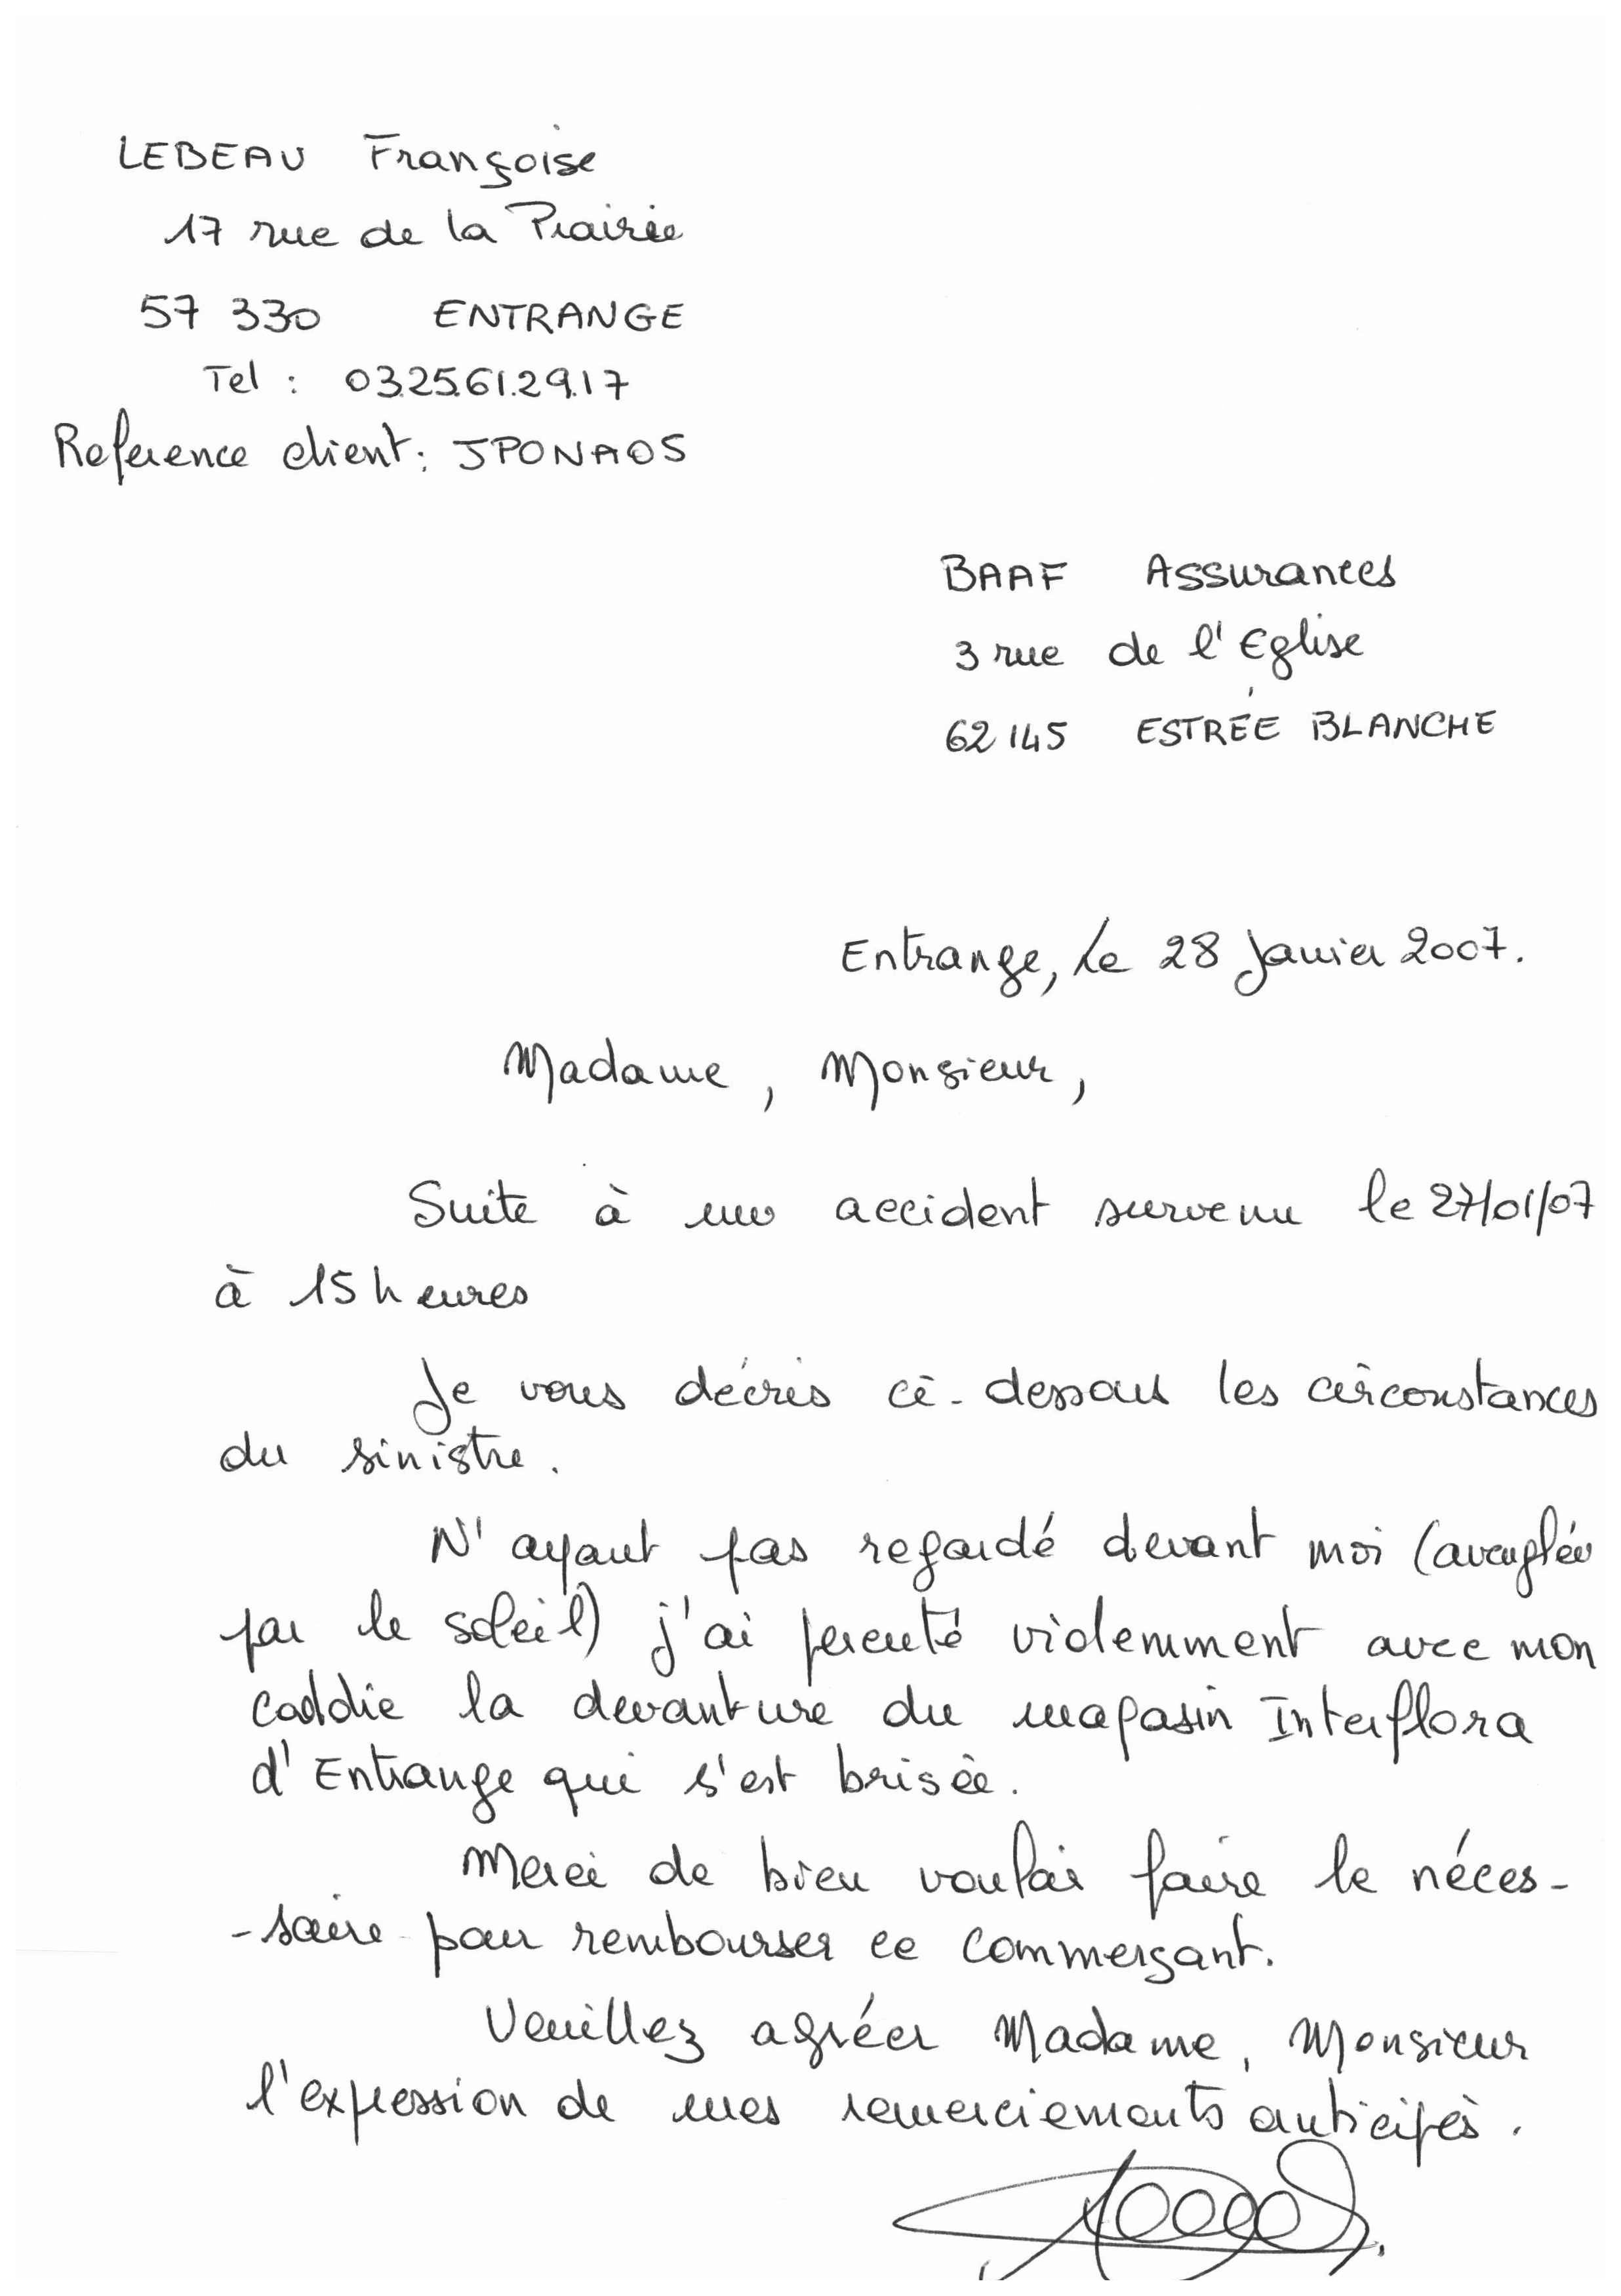 LEBEAU Françoise
17 rue de la Prairie
57 330 ENTRANGE
Tel : 03.25.61.29.17
Reference client : JPONAOS
BAAF Assurances
3 rue de l'Eglise
62 145 ESTRÉE BLANCHE
Entrange, le 28 Janvier 2007.
Madame, Monsieur,
Suite à un accident survenu le 27/01/07
à 15 heures
Je vous décris ci-dessous les circonstances
du sinistre.
N'ayant pas regardé devant moi (aveuglée
par le soleil) j'ai percuté violemment avec mon
caddie la devanture du magasin Interflora
d'Entrange qui s'est brisée.
Merci de bien vouloir faire le néces-
-saire pour rembourser ce commerçant.
Veuillez agréer Madame, Monsieur
l'expression de mes remerciements anticipés.